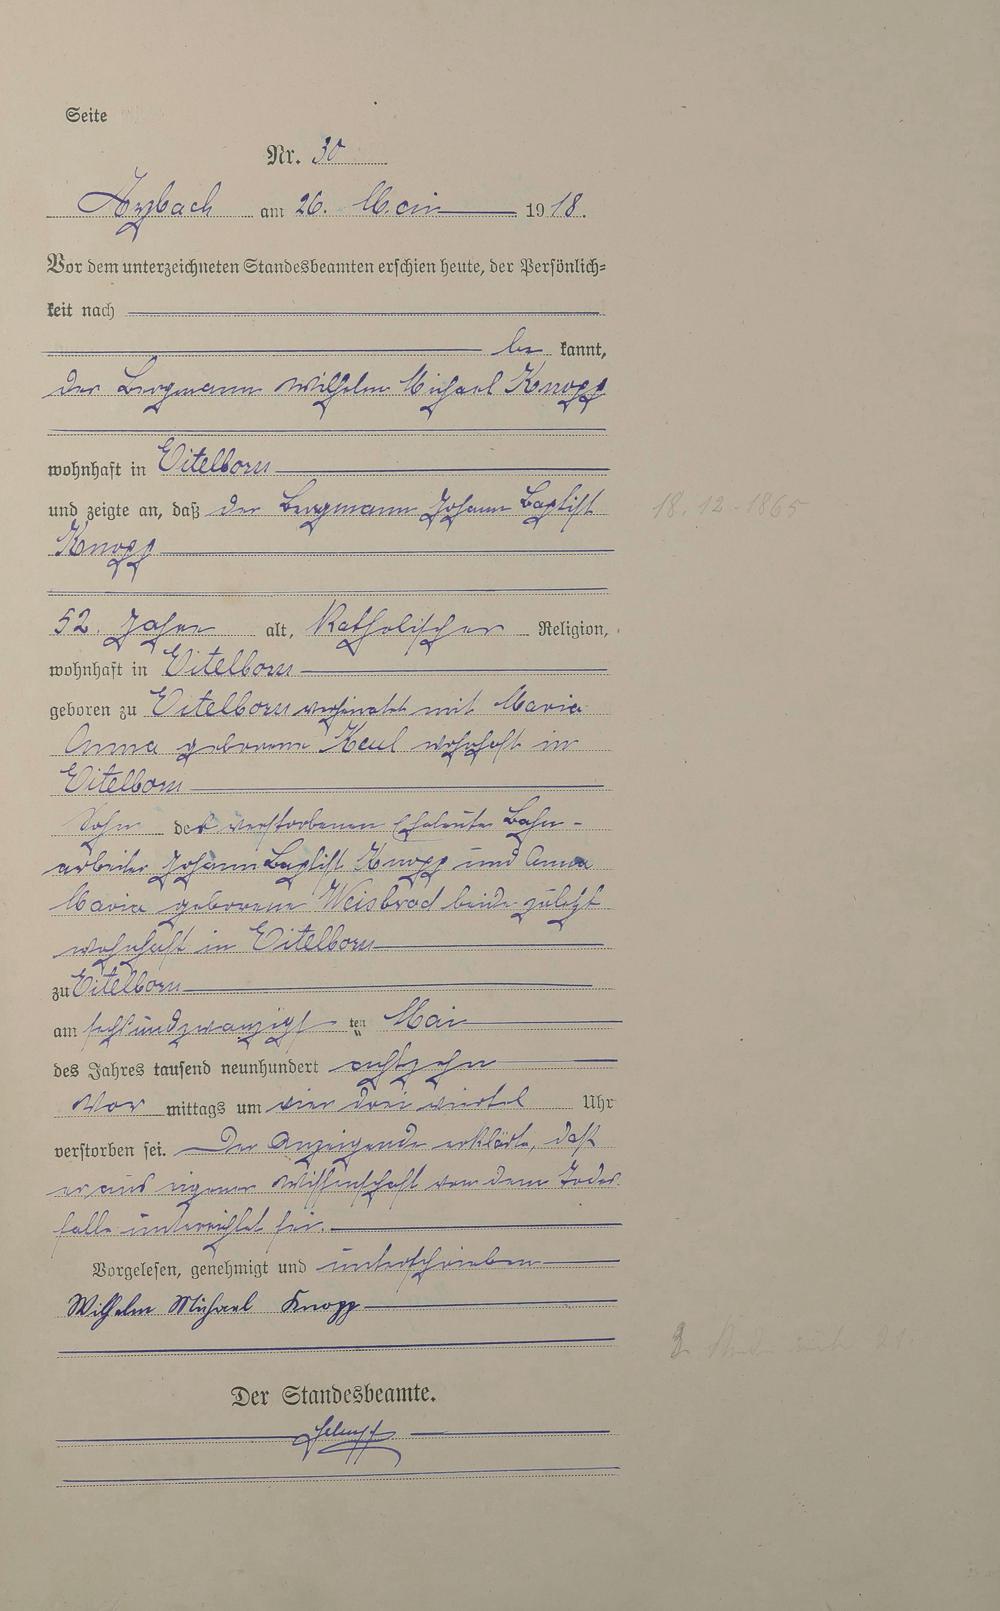 Seite
Nr. 30
Arzbach am 26. Mai 1918.
Vor dem unterzeichneten Standesbeamten erschien heute, der Persönlich-
keit nach
be kannt,
der Bergmann Wilhelm Michael Knopp
wohnhaft in Eitelborn
und zeigte an, daß der Bergmann Johann Baptist
18.12.1865
Knopp
52 Jahre alt, Katholischer Religion,
wohnhaft in Eitelborn
geboren zu Eitelborn verheiratet mit Maria
Anna geborene Keul wohnhaft in
Eitelborn
Sohn der verstorbenen Eheleute Bahn-
arbeiter Johann Baptist Knopp und Anna
Maria geborene Weisbrod beide zuletzt
wohnhaft in Eitelborn
zu Eitelborn
am sechsundzwanzigs ten Mai
des Jahres tausend neunhundert achtzehn
Vor mittags um vier drei viertel Uhr
verstorben sei. Der Anzeigende erklärte, daß
er aus eigener Wissenschaft von dem Todes
falle unterrichtet sei.
Vorgelesen, genehmigt und unterschrieben
Wilhelm Michael Knopp
Der Standesbeamte.